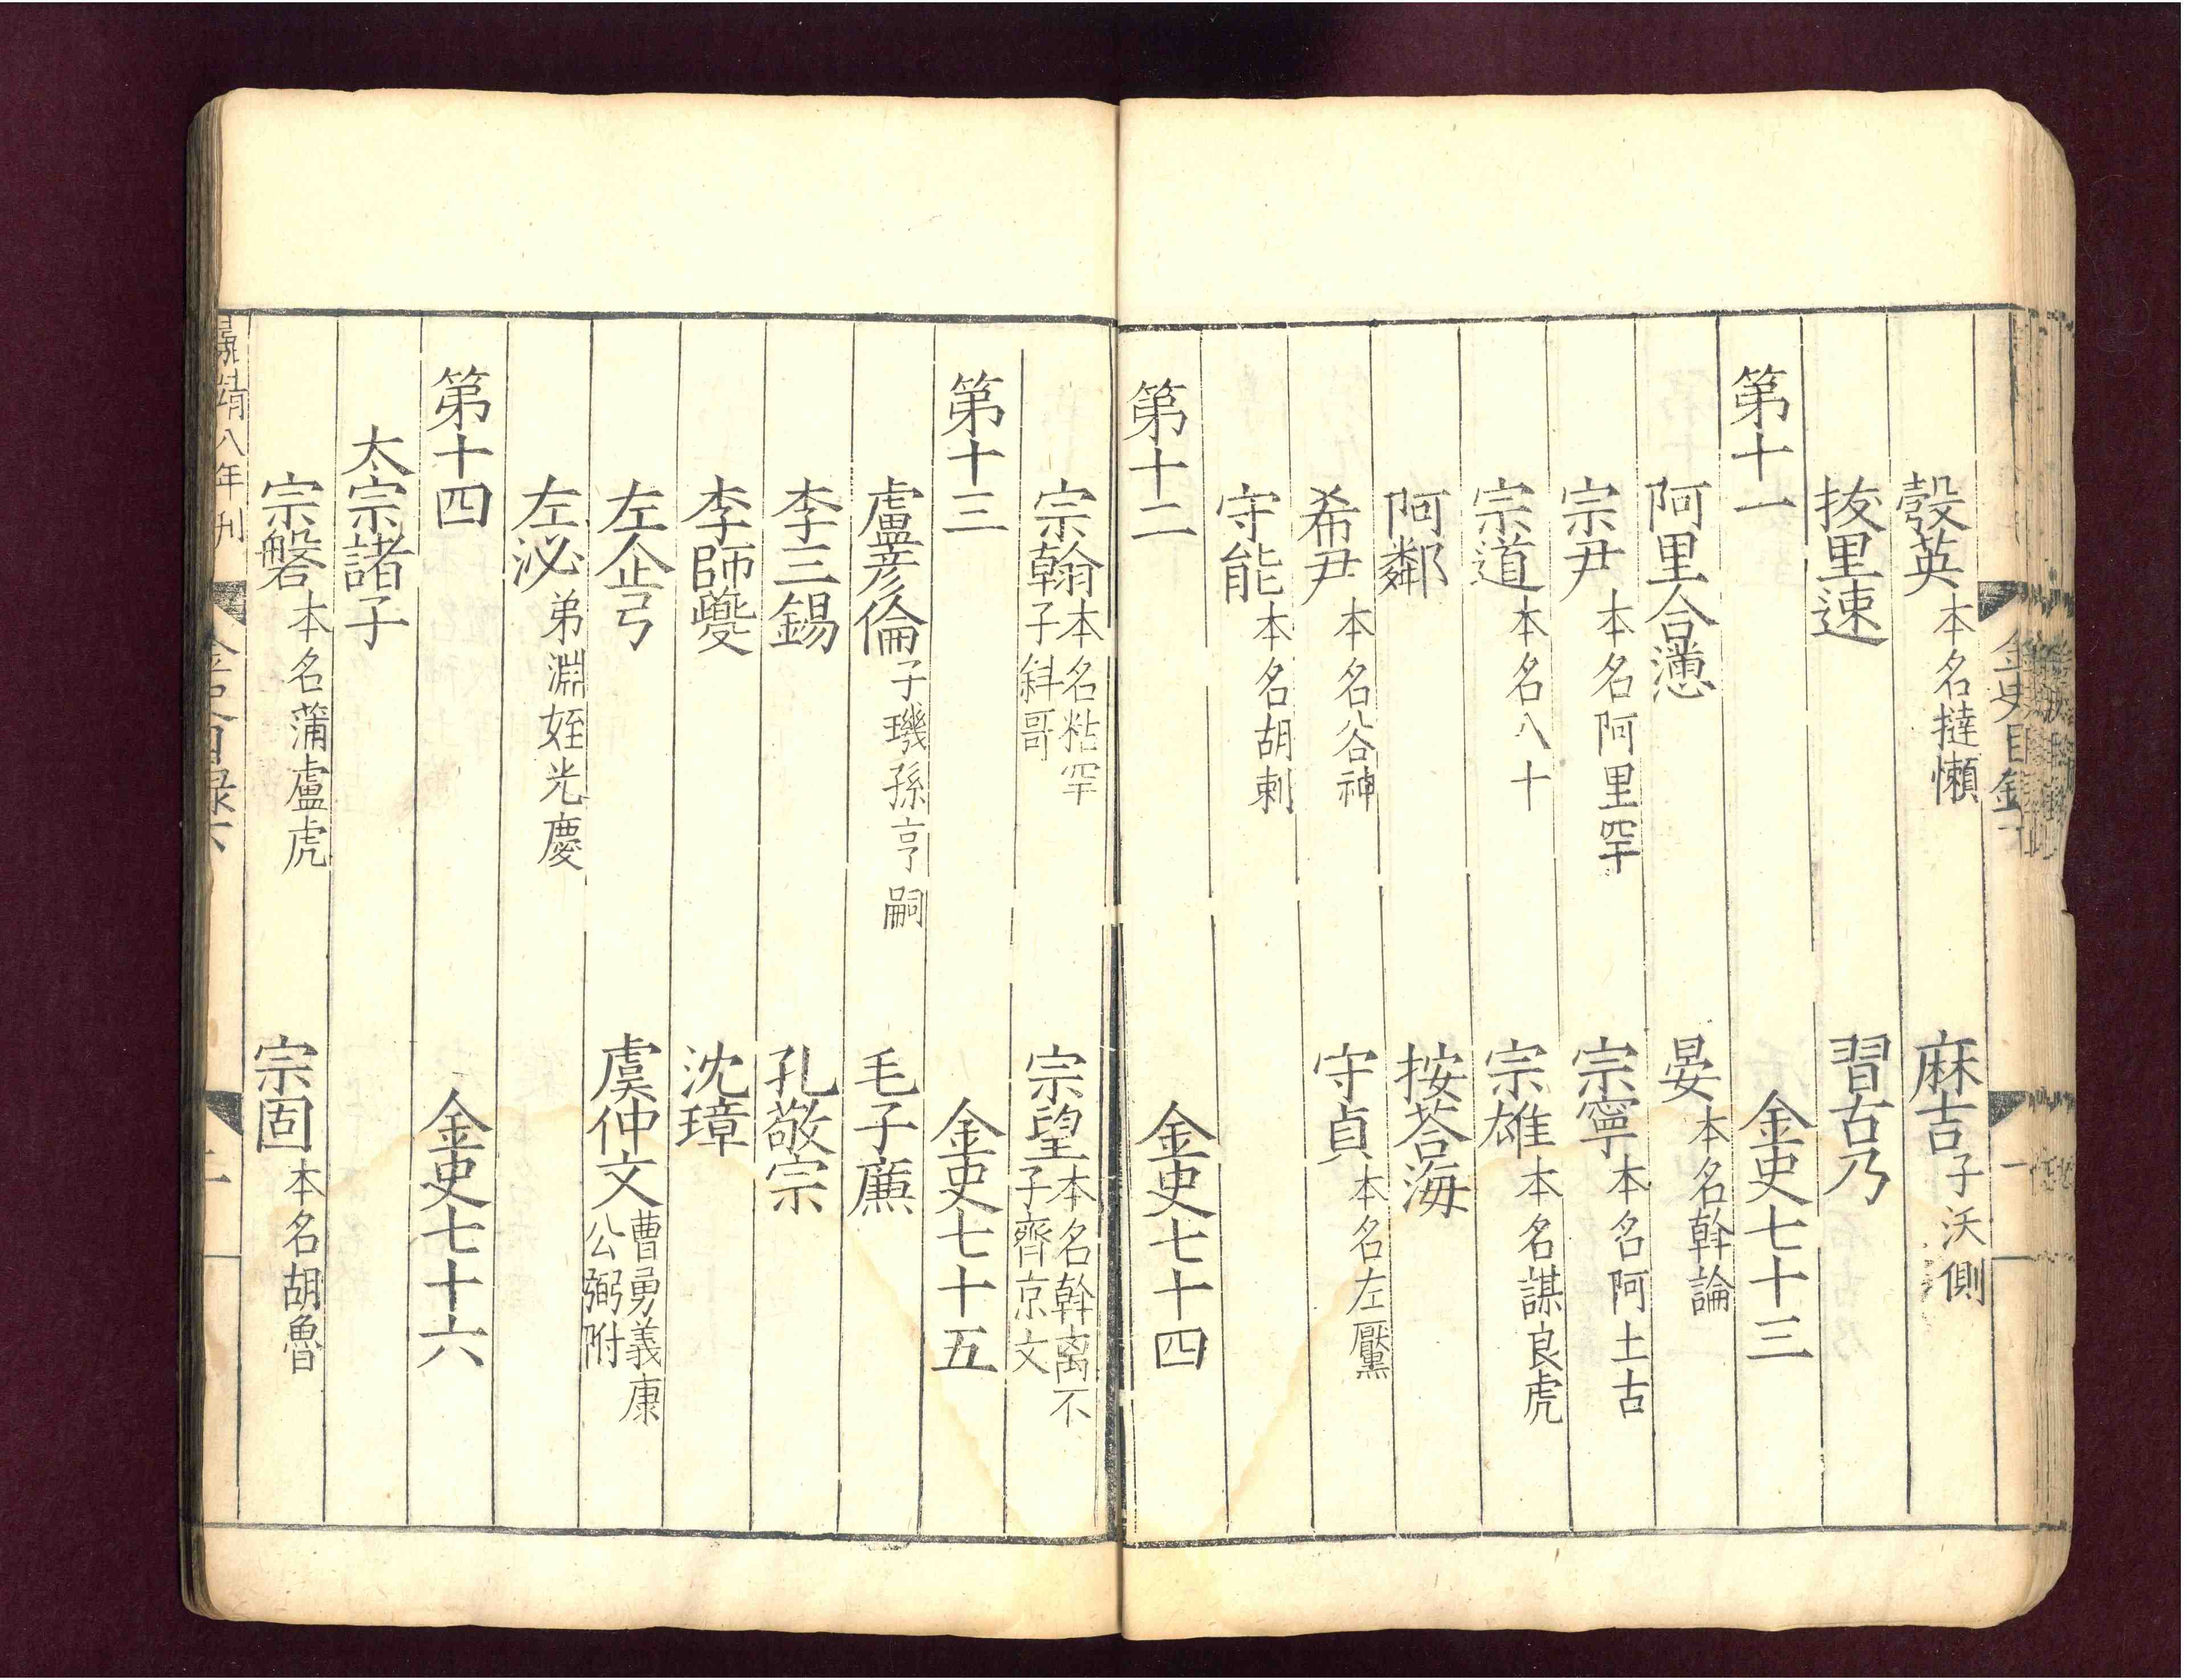 彀英本名撻懶　麻吉子沃側
拔里速　習古乃
第十一　金史七十三
阿里合懣　晏本名斡論
宗尹本名阿里罕　宗寧本名阿土古
宗道本名八十　宗雄本名謀良虎
阿鄰　按荅海
希尹本名谷神　守貞本名左靨
守能本名胡剌
第十二　金史七十四
宗翰本名粘罕子斜哥　宗望本名斡离不子齊京文
第十三　金史七十五
盧彥倫子璣孫亨嗣　毛子廉
李三錫　孔敬宗
李師夔　沈璋
左企弓　虞仲文曹勇義康公弼附
左泌弟淵姪光慶
第十四　金史七十六
太宗諸子
宗磐本名蒲盧虎　宗固本名胡魯
嘉靖八年刊　金史目録下　二